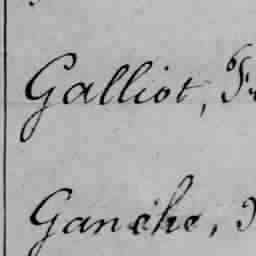 Galliot,
Ganéhe,